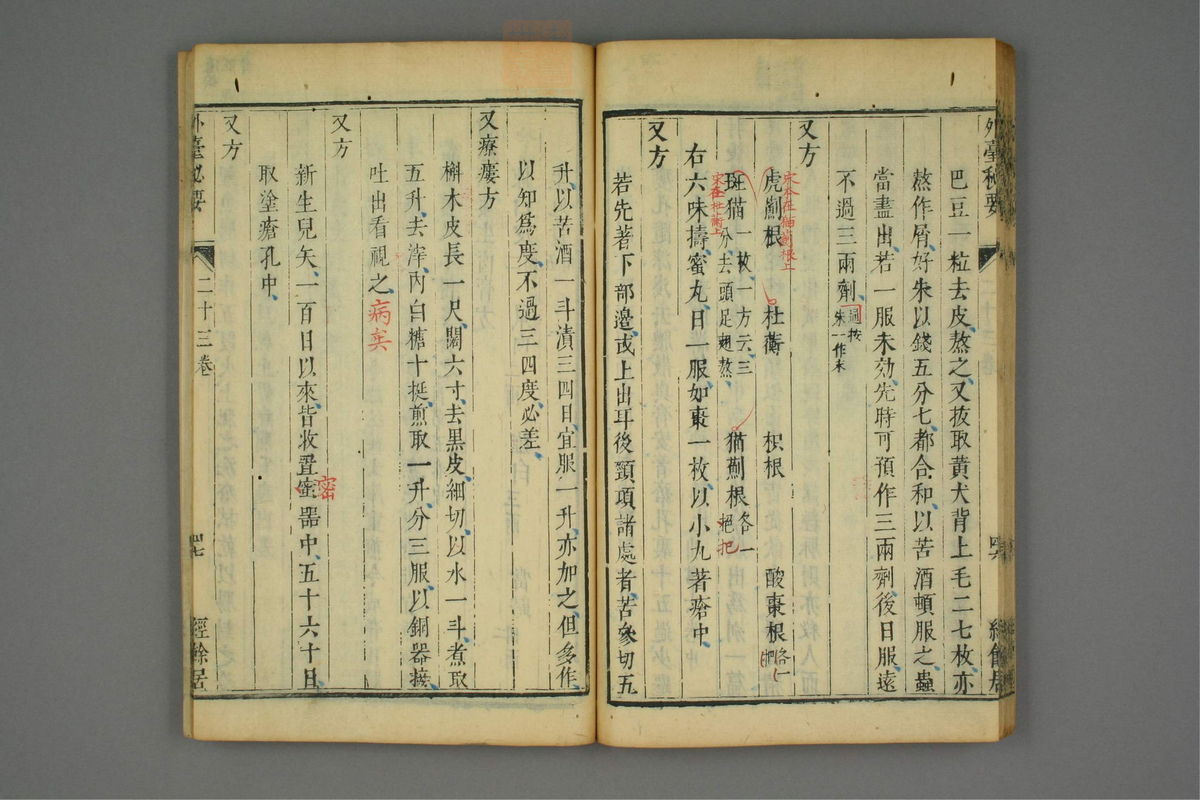 外臺秘要
巴豆一粒去皮熬之又拔取黃犬背上毛二七枚亦
熬作屑好朱以錢五分七都合和以苦酒頓服之蟲
當盡出若一服未効先時可預作三兩劑後日服遠
不過三兩劑過按朱一作末
又方
宋本在細劑根上
虎薊根 杜蘅 枳根 酸棗根各一把
宋在杜蘅上
斑猫一枚一方云三分去頭足翅熬 猫薊根各一把 把
右六味擣蜜丸日一服如棗一枚以小丸著瘡中
又方
若先著下部邊或上出耳後頸項諸處者苦參切五
升以苦酒一斗漬三四日宜服一升亦加之但多作
以知爲度不過三四度必差
又療瘻方
槲木皮長一尺闊六寸去黑皮細切以水一斗煮取
五升去滓內白糖十挺煎取一升分三服以銅器接
吐出看視之病矣
又方
新生兒矢一百日以來皆收置蜜器中五十六十日
密
取塗瘡孔中
又方
外臺秘要
二十三卷
四七
經餘居